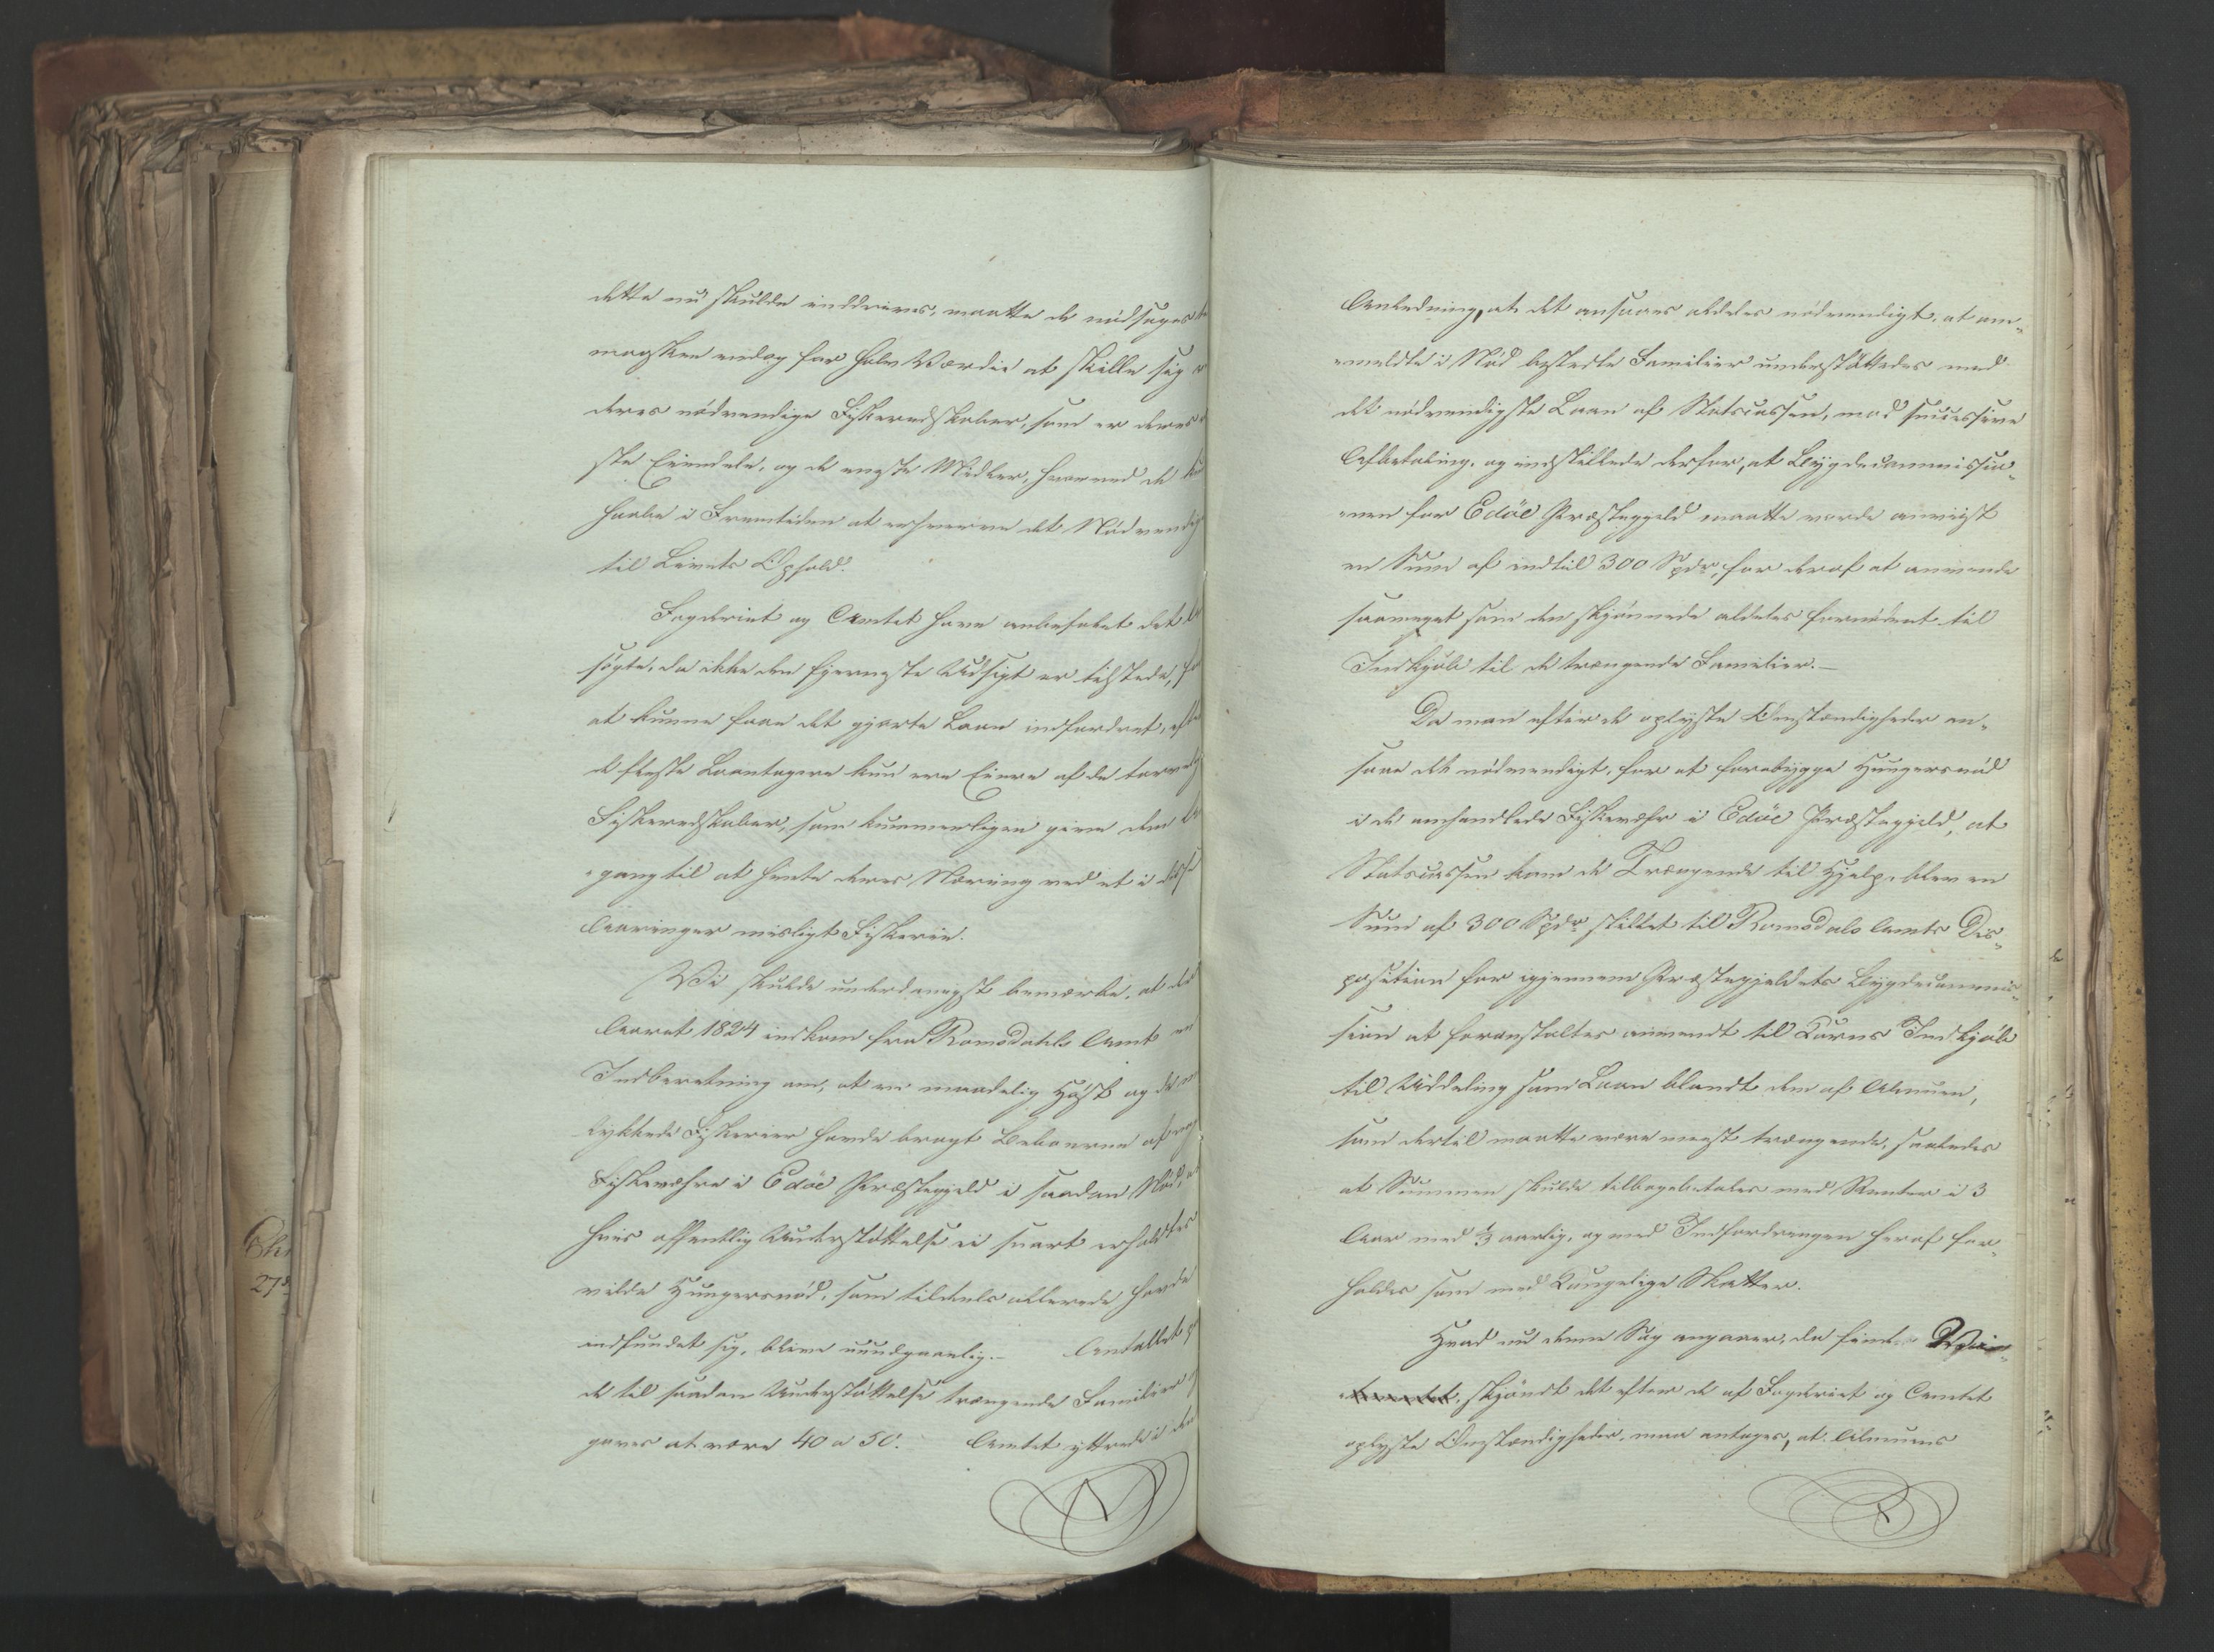 dette nu skulde inddrives, maatte de nødsages
maaskee endog for halv Værdie at skille sig
deres nødvendige Fiskeredskaber, som er deres
ste Eiendele, og de eneste Midler, hvorved de
haabe i Fremtiden at erhverve det Nødvendig
til Livets Ophold.
Fogderiet og Amtet have anbefalet det
søgte, da ikke den fjerneste Udsigt er tilstede,
at kunne faae det gjorte Laan indfordret,
de fleste Laantagere kun ere Eiere af de tarvelig
Fiskeredskaber, som kummerligen give dem
gang til at hente deres Næring ved et i disse
Aaringer misligt Fiskerie.
Vi skulde underdanigst bemærke, at
Aaret 1824 indkom fra Romsdahls Amt en
Indberetning om, at en maadelig Høst og
lykkede Fiskerier havde bragt Beboerne af
Fiskeværene i Edøe Præstegjeld i saadan Nød,
hvis offentlig Understøttelse ei snart erholdtes
vilde Hungersnød, som tildeels allerede havde
indfundet sig, blive uundgaaelig.— Antallet
de til saadan Understøttelse trængende Familier
gaves at være 40 a 50. Amtet yttrede i den
Anledning, at det ansaaes aldeles nødvendigt, at om-
-meldte i Nød bestedte Familier understøttedes med
det nødvendigste Laan af Statscassen, mod successive
Afbetaling, og indstillede derfor, at Bygdecommissio-
-nen for Edöe Præstegjeld maatte vorde anviist
en Sum af indtil 300 Spdr, for deraf at anvende
saameget som den skjønnede aldeles fornødent til
Indkjøb til de trængende Familier.—
Da man efter de oplyste Omstændigheder an-
saae det nødvendigt, for at forebygge Hungersnød
i de omhandlede Fiskevær i Edöe Præstegjeld, at
Statscassen kom de Trængende til Hjelp, blev en
Sum af 300 Spdr stillet til Romsdals Amts Dis-
position for igjennem Præstegjeldets Bygdecommis-
sion at foranstaltes anvendt til Korns Indkjøb
til Uddeling som Laan blandt dem af Almuen,
som dertil maatte være meest trængende, saaledes
at Summen skulde tilbagebetales med Renter i 3
Aar med 1/3 aarlig, og med Indfordringen heraf for-
holdes som med Kongelige Skatter.
Hvad nu denne Sag angaaer, da finde Vi
skjøndt det efter de af Fogderiet og Amtet
oplyste Omstændigheder, maa antages, at Almuens